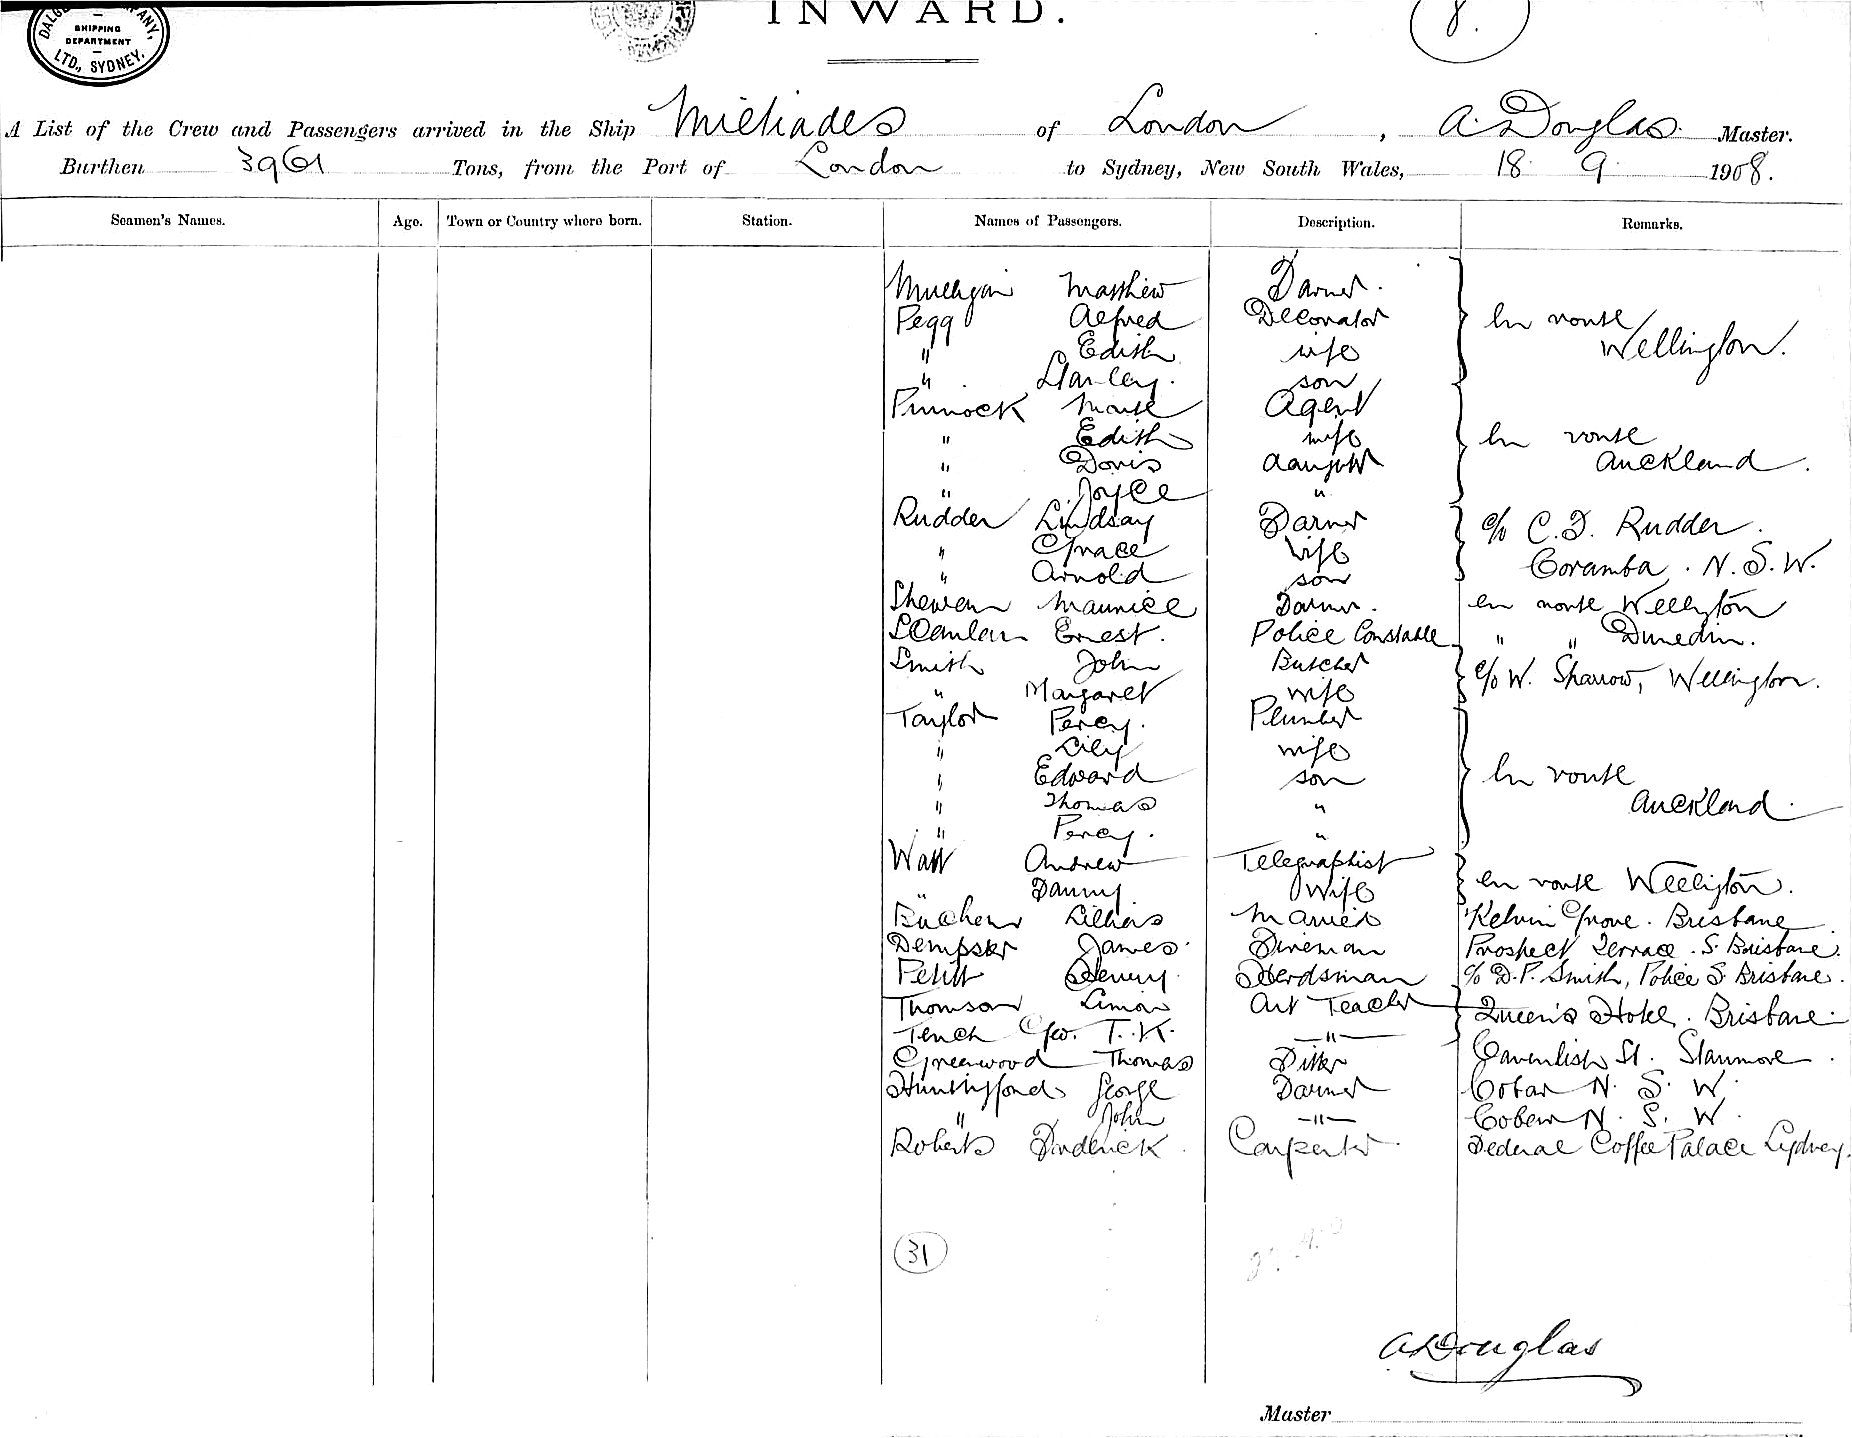 SHIPPING
DEPARTMENT
LTD., SYDNEY.
INWARD.
8.
A List of the Crew and Passengers arrived in the Ship Miltiades of London, A. Douglas Master.
Burthen 3961 Tons, from the Port of London to Sydney, New South Wales, 18 9 1908.
Seamen's Names. Age. Town or Country where born. Station. Names of Passengers. Description. Remarks.
Mulligan Matthew Farmer.
Pegg Alfred Decorator En route
" Edith wife Wellington.
" Stanley. son
Pinnock Agent
" Edith wife En route
" Doris daughter Auckland.
" Joyce "
Rudder Lindsay Farmer c/o C. F. Rudder.
" Grace Wife
" Arnold son Coramba. N. S. W.
Maurice Farmer. en route Wellington
Scanlan Ernest. Police Constable " " Dunedin.
Smith John Butcher
" Margaret wife c/o W. Sharrow, Wellington.
Taylor Percy. Plumber
" Lily wife
" Edward son En route
" Thomas " Auckland.
" Percy. "
Watt Andrew Telegraphist
" Fanny Wife en route Wellington.
Lillias Married Kelvin Grove. Brisbane
Dempster James Fireman Prospect Terrace. S. Brisbane.
Petitt Henry. Herdsman c/o D. P. Smith, Police S. Brisbane.
Thomson Simon Art Teacher Queen's Hotel. Brisbane.
Tench Geo. T. K. -"-
Greenwood Thomas Fitter Cavendish St. Stanmore.
Huntingford George Farmer Cobar N. S. W.
" John -"- Cobar N. S. W.
Roberts Frederick Carpenter Federal Coffee Palace Sydney.
31
A Douglas
Master